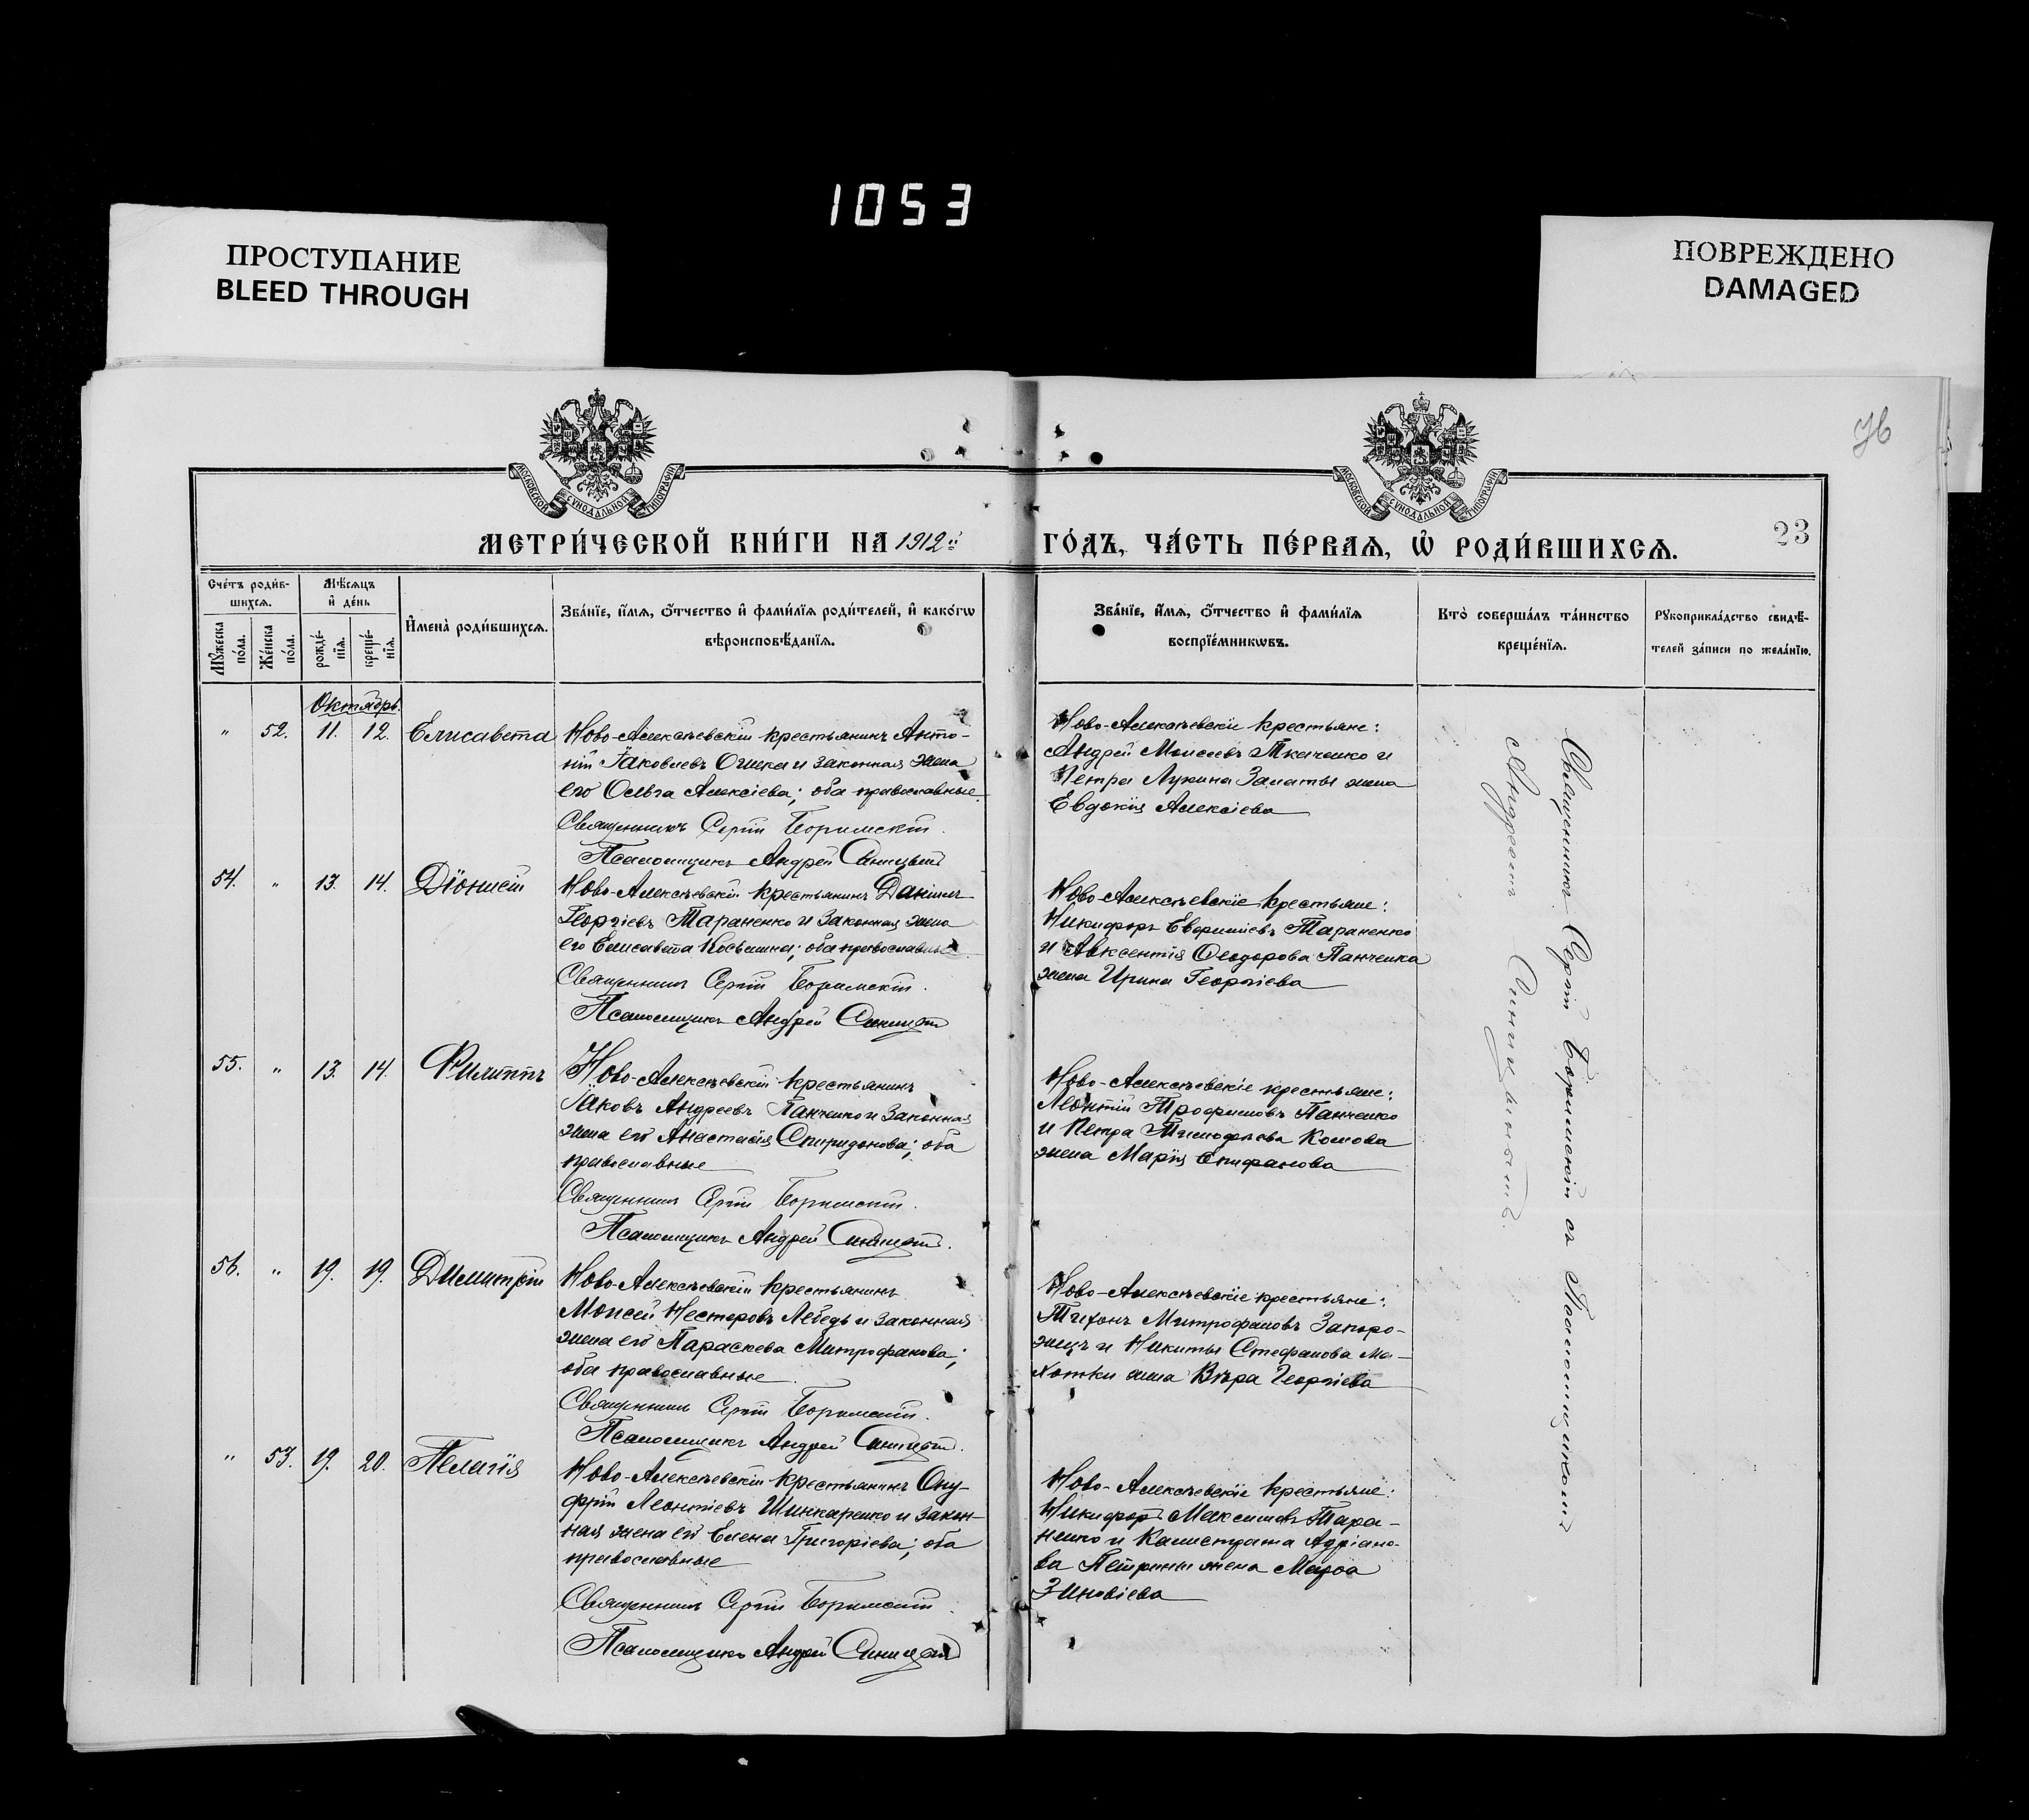 1053
ПРОСТУПАНИЕ
BLEED THROUGH
ПОВРЕЖДЕНО
DAMAGED
76
МОСКОВСКОЙ СѴНОДАЛЬНОЙ ТИПОГРАФІИ
МОСКОВСКОЙ СѴНОДАЛЬНОЙ ТИПОГРАФІИ
МЕТРИ́ЧЕСКОЙ КНИ́ГИ НА 1912й ГО́ДЪ, ЧА́СТЬ ПЕ́РВАѦ, Ѡ҆ РОДИ́ВШИХСѦ.
23
Сче́тъ роди́в-
шихсѧ.
Мѣ́сѧцъ
и҆ де́нь
Мꙋ́жеска
по́ла.
Же́нска
по́ла.
рожде́-
нїѧ.
креще́-
нїѧ.
И҆мена̀ роди́вшихсѧ.
Зва́нїе, и҆́мѧ, ѻ҆́тчество и҆ фами́лїѧ роди́телей, и҆ како́гѡ
вѣроисповѣ́данїѧ.
Зва́нїе, и҆́мѧ, ѻ҆́тчество и҆ фами́лїѧ
воспрїе́мникѡвъ.
Кто̀ соверша́лъ та́инство
креще́нїѧ.
Рꙋкоприкла́дство свидѣ́-
телей за́писи по жела́нїю.
Октябрь.
" 52. 11. 12. Елисавета
Ново-Алексѣевскій крестьянинъ Анто-
ній Іаковлевъ Ошека и законная жена
его Ольга Алексіева; оба православные.
Священникъ Сергій Боримскій.
Псаломщикъ Андрей Синицкій
Ново-Алексѣевскіе крестьяне:
Андрей Моисеевъ Ткаченко и
Петра Лукина Заматы жена
Евдокія Алексіева
54. " 13. 14. Діонисій
Ново-Алексѣевскій крестьянинъ Даніилъ
Георгіевъ Тараненко и законная жена
его Елисавета Косьмина; оба православные.
Священникъ Сергій Боримскій.
Псаломщикъ Андрей Синицкій
Ново-Алексѣевскіе крестьяне:
Никифоръ Тараненко
и Авксентія Ѳеодорова Панченка
жена Ирина Георгіева
55. " 13. 14. Филиппъ
Ново-Алексѣевскій крестьянинъ
Іаковъ Андреевъ Панченко и законная
жена его Анастасія Спиридонова; оба
православные
Священникъ Сергій Боримскій.
Псаломщикъ Андрей Синицкій.
Ново-Алексѣевскіе крестьяне:
Леонтій Трофимовъ Панченко
и Петра Тимофеева Комова
жена Марія Епифанова
56. " 19. 19. Димитрій
Ново-Алексѣевскій крестьянинъ
Моисей Несторовъ Лебедь и законная
жена его Параскева Митрофанова;
оба православные.
Священникъ Сергій Боримскій.
Псаломщикъ Андрей Синицкій.
Ново-Алексѣевскіе крестьяне:
Тихонъ Митрофановъ Запоро-
жецъ и Никиты Стефанова Ма-
хотки жена Вѣра Георгіева
" 53. 19. 20. Пелагія
Ново-Алексѣевскій крестьянинъ Ону-
фрій Леонтіевъ Шинкаренко и закон-
ная жена его Елена Григоріева; оба
православные
Священникъ Сергій Боримскій.
Псаломщикъ Андрей Синицкій
Ново-Алексѣевскіе крестьяне:
Никифоръ Максимовъ Тара-
ненко и Калистрата Адріано-
ва Петрины жена Марѳа
Зиновіева
Священникъ Сергій Боримскій съ Псаломщикомъ
Андреемъ Синицкимъ.